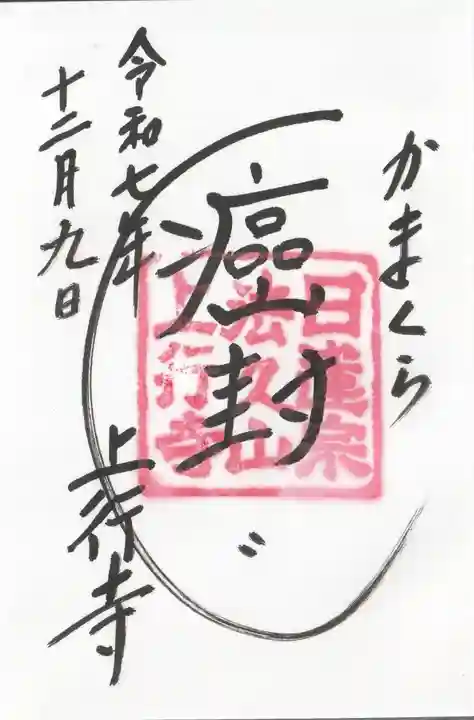 かまくら
癌封じ
令和七年
十二月九日
上行寺
日蓮宗
法久山
上行寺